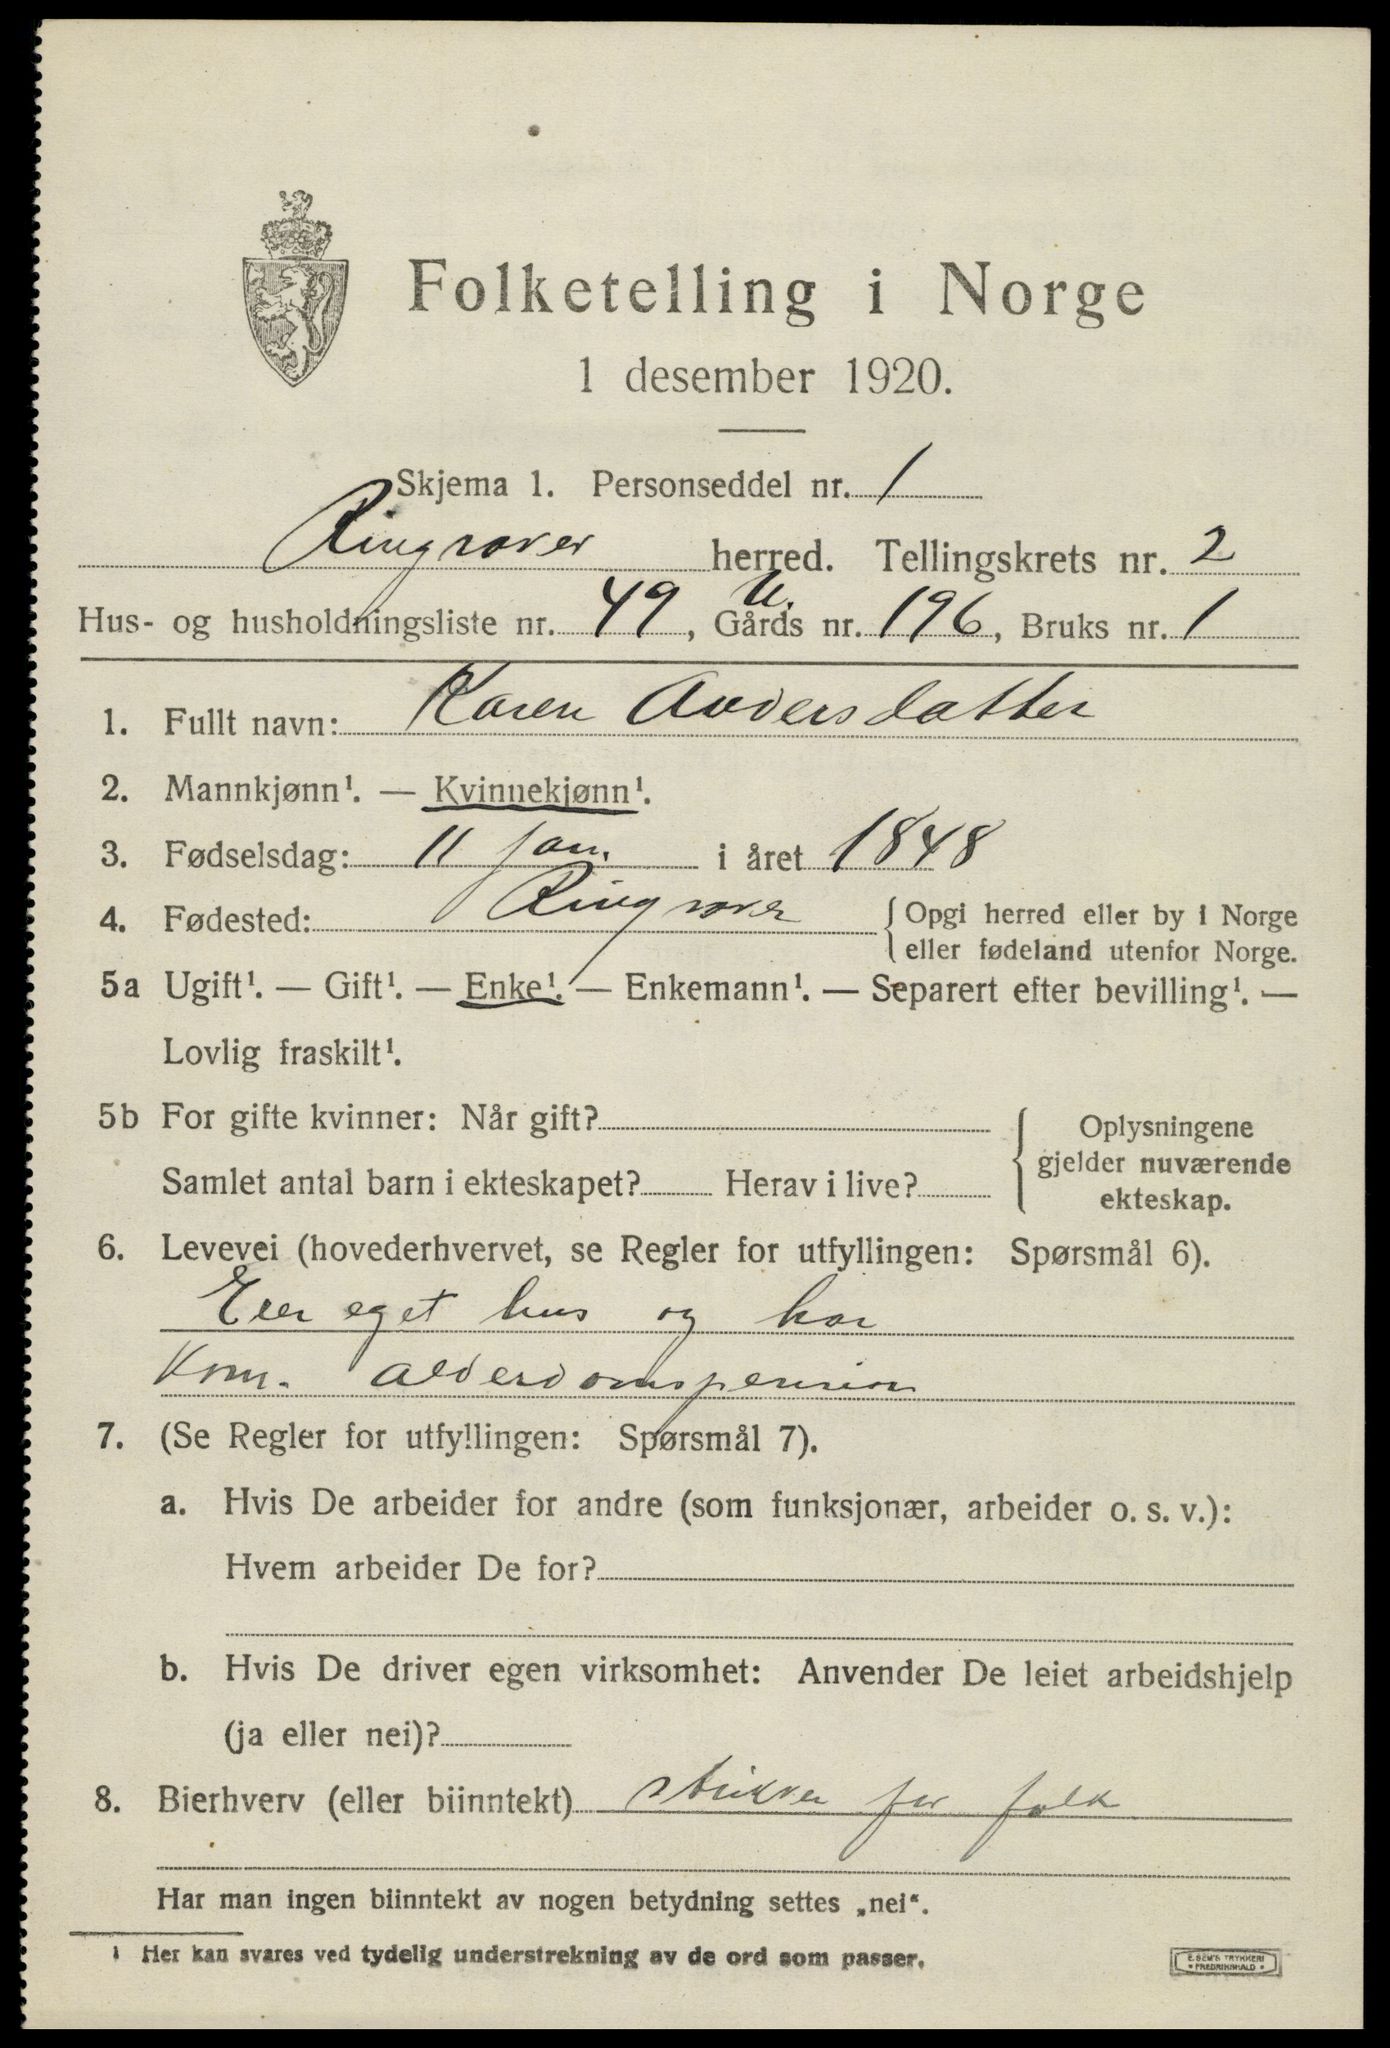 Folketelling i Norge
1 desember 1920.
Skjema 1. Personseddel nr. 1
Ringsaker herred. Tellingskrets nr. 2
Hus- og husholdningsliste nr. 49, U. Gårds nr. 196, Bruks nr. 1
1. Fullt navn: Karen Andersdatter
2. Mannkjønn¹. — Kvinnekjønn¹.
3. Fødselsdag: 11 jan. i året 1848
4. Fødested: Ringsaker { Opgi herred eller by i Norge
eller fødeland utenfor Norge.
5a Ugift¹. — Gift¹. — Enke¹. — Enkemann¹. — Separert efter bevilling¹. —
Lovlig fraskilt¹.
5b For gifte kvinner: Når gift? { Oplysningene
gjelder nuværende
Samlet antal barn i ekteskapet? Herav i live?
ekteskap.
6. Levevei (hovederhvervet, se Regler for utfyllingen: Spørsmål 6).
Eier eget hus og har
Kom. alderdomspension
7. (Se Regler for utfyllingen: Spørsmål 7).
a. Hvis De arbeider for andre (som funksjonær, arbeider o. s. v.):
Hvem arbeider De for?
b. Hvis De driver egen virksomhet: Anvender De leiet arbeidshjelp
(ja eller nei)?
8. Bierhverv (eller biinntekt) strikker for folk
Har man ingen biinntekt av nogen betydning settes „nei“.
1 Her kan svares ved tydelig understrekning av de ord som passer.
E. SEM'S TRYKKERI
• FREDRIKSHALD •